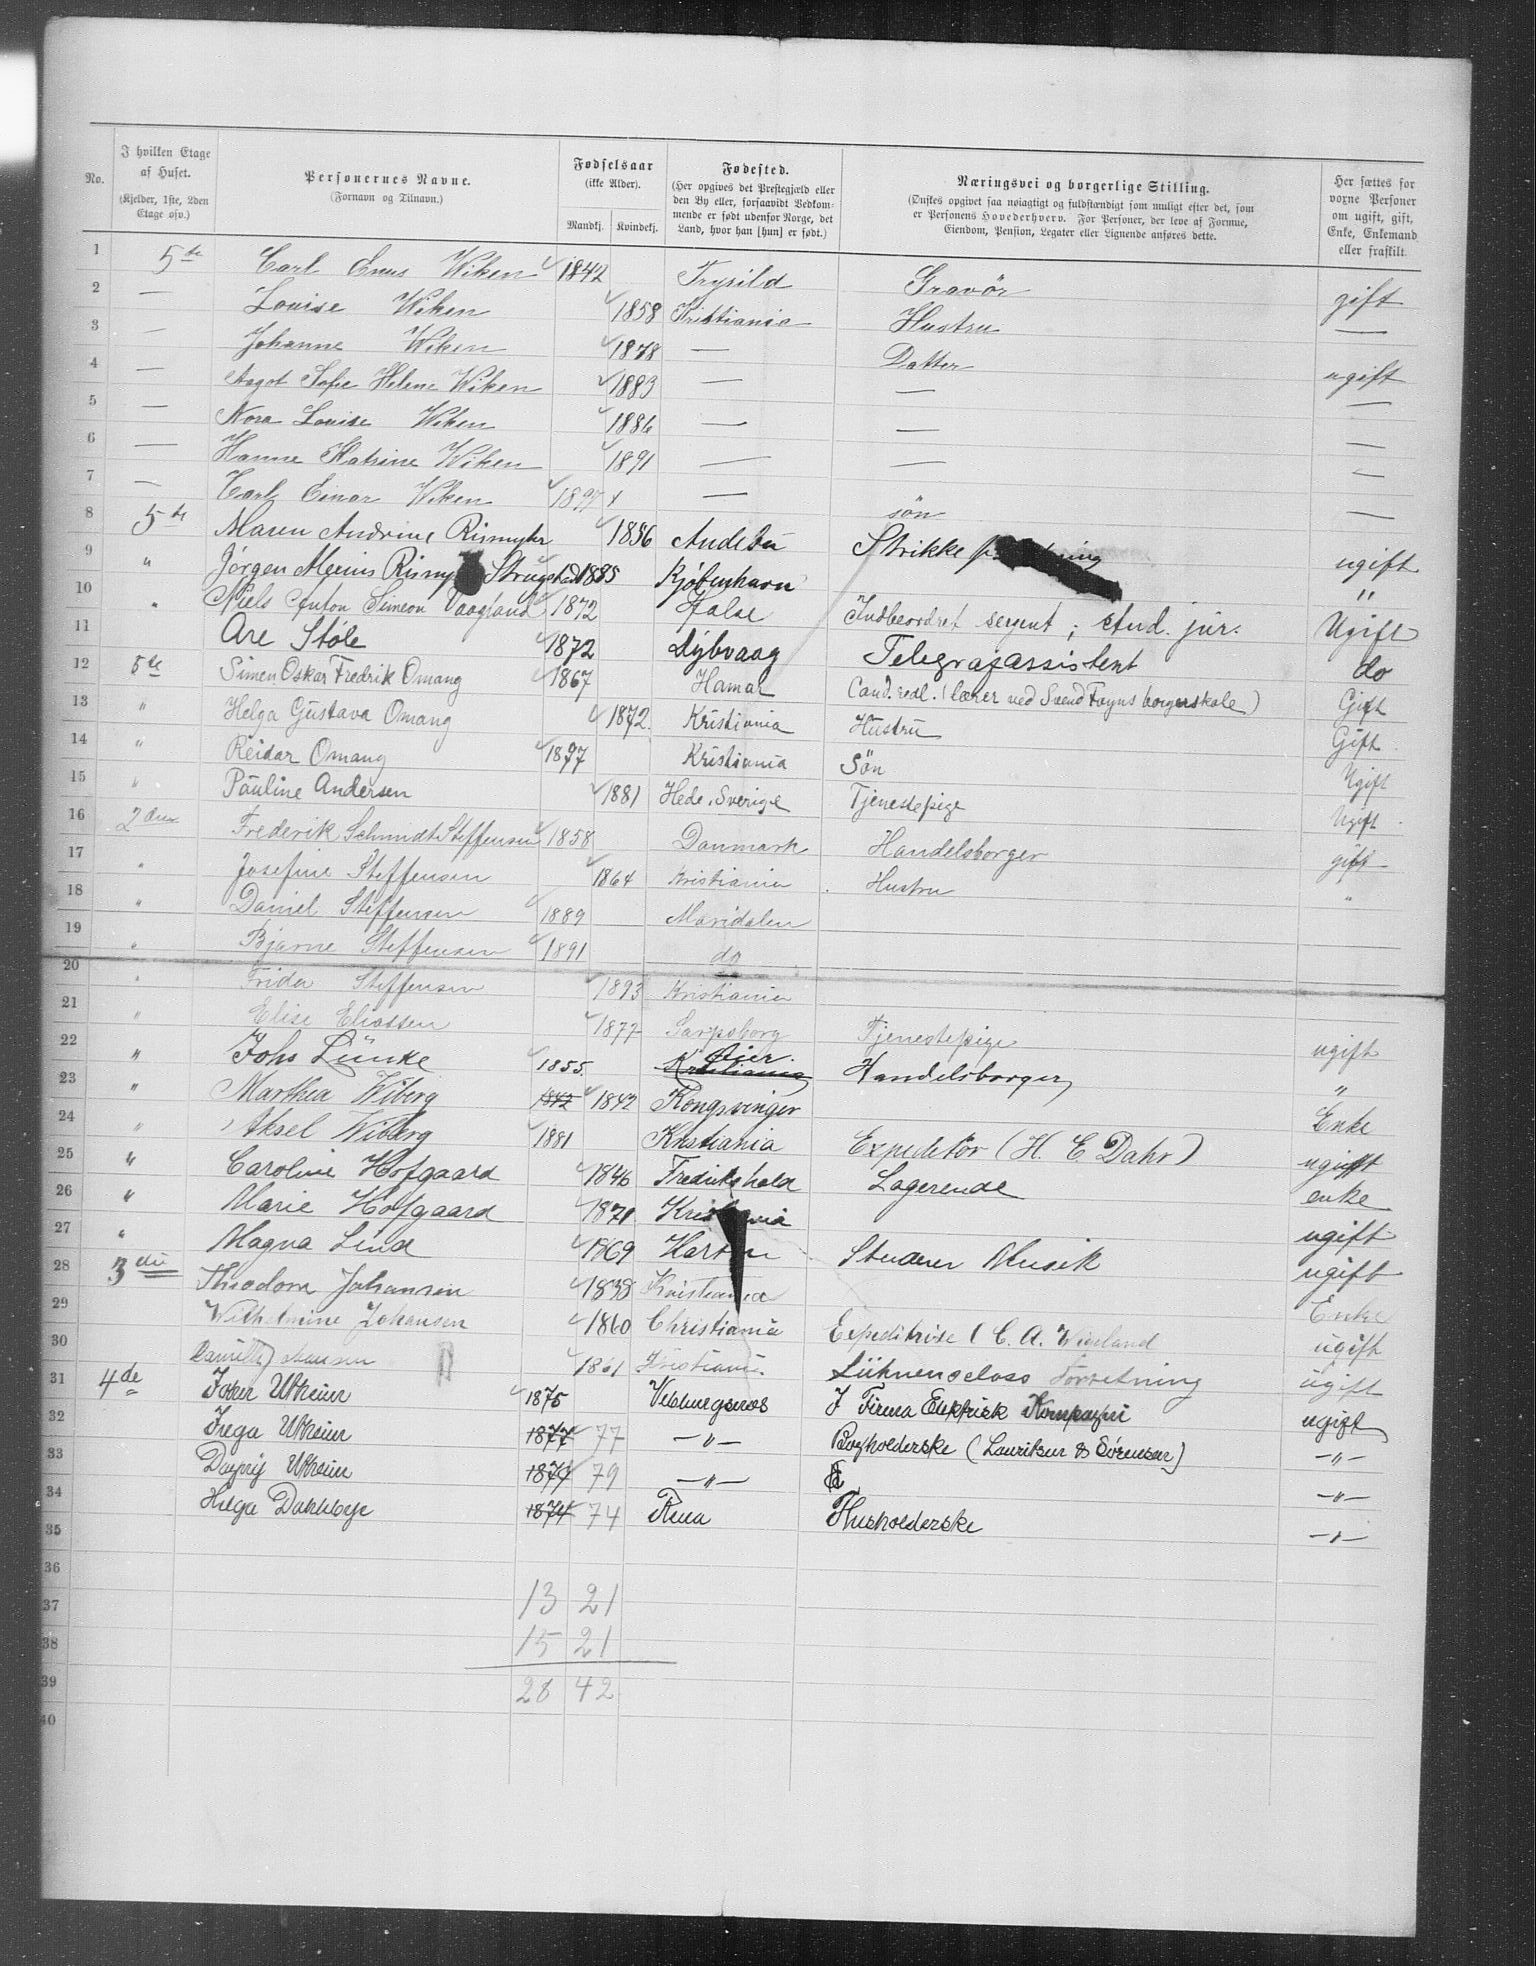 No. | I hvilken Etage af Huset. (Kjelder, 1ste, 2den Etage osv.) | Personernes Navne. (Fornavn og Tilnavn.) | Fødselsaar (ikke Alder). Mandkj. Kvindekj. | Fødested. (Her opgives det Prestegjæld eller den By eller, forsaavidt Vedkommende er født udenfor Norge, det Land, hvor han [hun] er født.) | Næringsvei og borgerlige Stilling. (Ønskes opgivet saa nøiagtigt og fuldstændigt som muligt efter det, som er Personens Hovederhverv. For Personer, der leve af Formue, Eiendom, Pension, Legater eller Lignende anføres dette. | Her sættes for voxne Personer om ugift, gift, Enke, Enkemand eller fraskilt.
1 5te Carl Wiken 1842 Trysild Gravör gift
2 — Louise Wiken 1858 Kristiania Hustru —
3 — Johanne Wiken 1878 — Datter ugift
4 — Aagot Sofie Helene Wiken 1883 — — —
5 — Nora Louise Wiken 1886 — — —
6 — Hanne Katrine Wiken 1891 — — —
7 — Carl Einar Wiken 1897 — sön —
8 5te Maren Andrine 1836 Andebu Strikke ugift
9 " Jörgen Kjöbenhavn "
10 " Niels Anton Simeon Vaagland 1872 Halse Indbeordret sergent; stud. jur. Ugift
11 Are Støle 1872 Dybvaag Telegrafassistent do
12 5te Simen Oskar Fredrik Omang 1867 Hamar Cand. real. (lærer ved Svend Foyns borgerskole) Gift
13 " Helga Gustava Omang 1872 Kristiania Hustru Gift
14 " Reidar Omang 1897 Kristiania Sön Ugift
15 " Pauline Andersen 1881 Hede, Sverige Tjenestepige Ugift
16 2den Frederik Schmidt Steffensen 1858 Danmark Handelsborger gift
17 " Josefine Steffensen 1864 Kristiania Hustru "
18 " Daniel Steffensen 1889 Maridalen
19 " Bjarne Steffensen 1891 do
20 " Frida Steffensen 1893 Kristiania
21 " Elise Eliassen 1877 Sarpsborg Tjenestepige ugift
22 " Johs Lünke 1855 Øier. Kristiania Handelsborger "
23 " Marthea Wiberg 1842 1842 Kongsvinger Enke
24 " Aksel Wiberg 1881 Kristiania Expeditör (H. E Dahr) ugift
25 " Caroline Hofgaard 1846 Fredrikshald Logerende enke
26 " Marie Hofgaard 1871 Kristiania ugift
27 " Magna Lind 1869 Studerer Musik ugift
28 3die Theodora Johansen 1838 Kristiania Enke
29 Wilhelmine Johansen 1860 Christiania Expeditrise (C. A. ugift
30 1861 Kristiania Forretning ugift
31 4de 1875 I Firma Elektrisk Kompagni ugift
32 1877 77 —"— Bogholderske (Lauritsen & Sörensen) —"—
33 1879 79 —"— —"—
34 Helga 1874 74 Rena Husholderske —"—
35
36
37 13 21
38 15 21
39 28 42
40